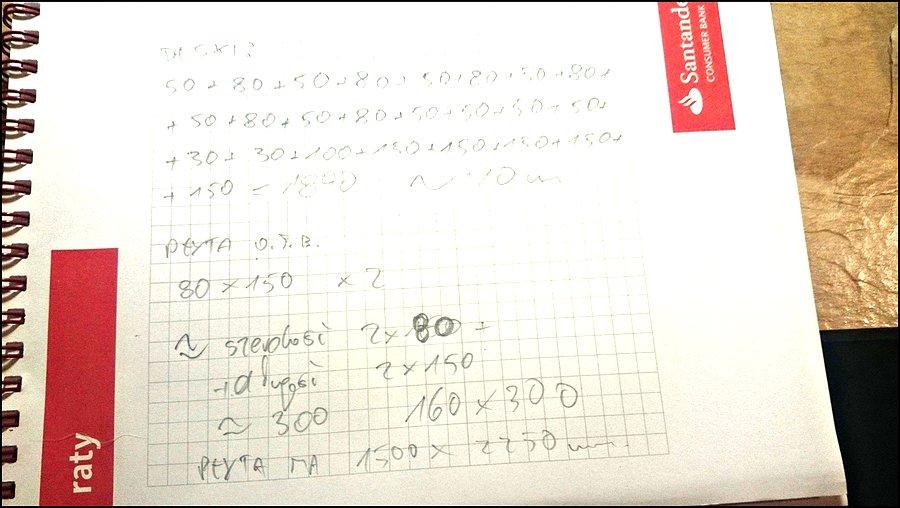 DESKI:
50 + 80 + 50 + 80 + 50 + 80 + 50 + 80 +
+ 50 + 80 + 50 + 80 + 50 + 50 + 50 + 50 +
+ 30 + 30 + 100 + 150 + 150 + 150 + 150 +
+ 150 = 1840 ~ 10 m
PŁYTA O.S.B.
80 × 150 × 2
≈ szerokości 2 × 80 =
długości 2 × 150
≈ 300 160 × 300
PŁYTA MA 1500 × 2250 mm.
Santander
CONSUMER BANK
raty